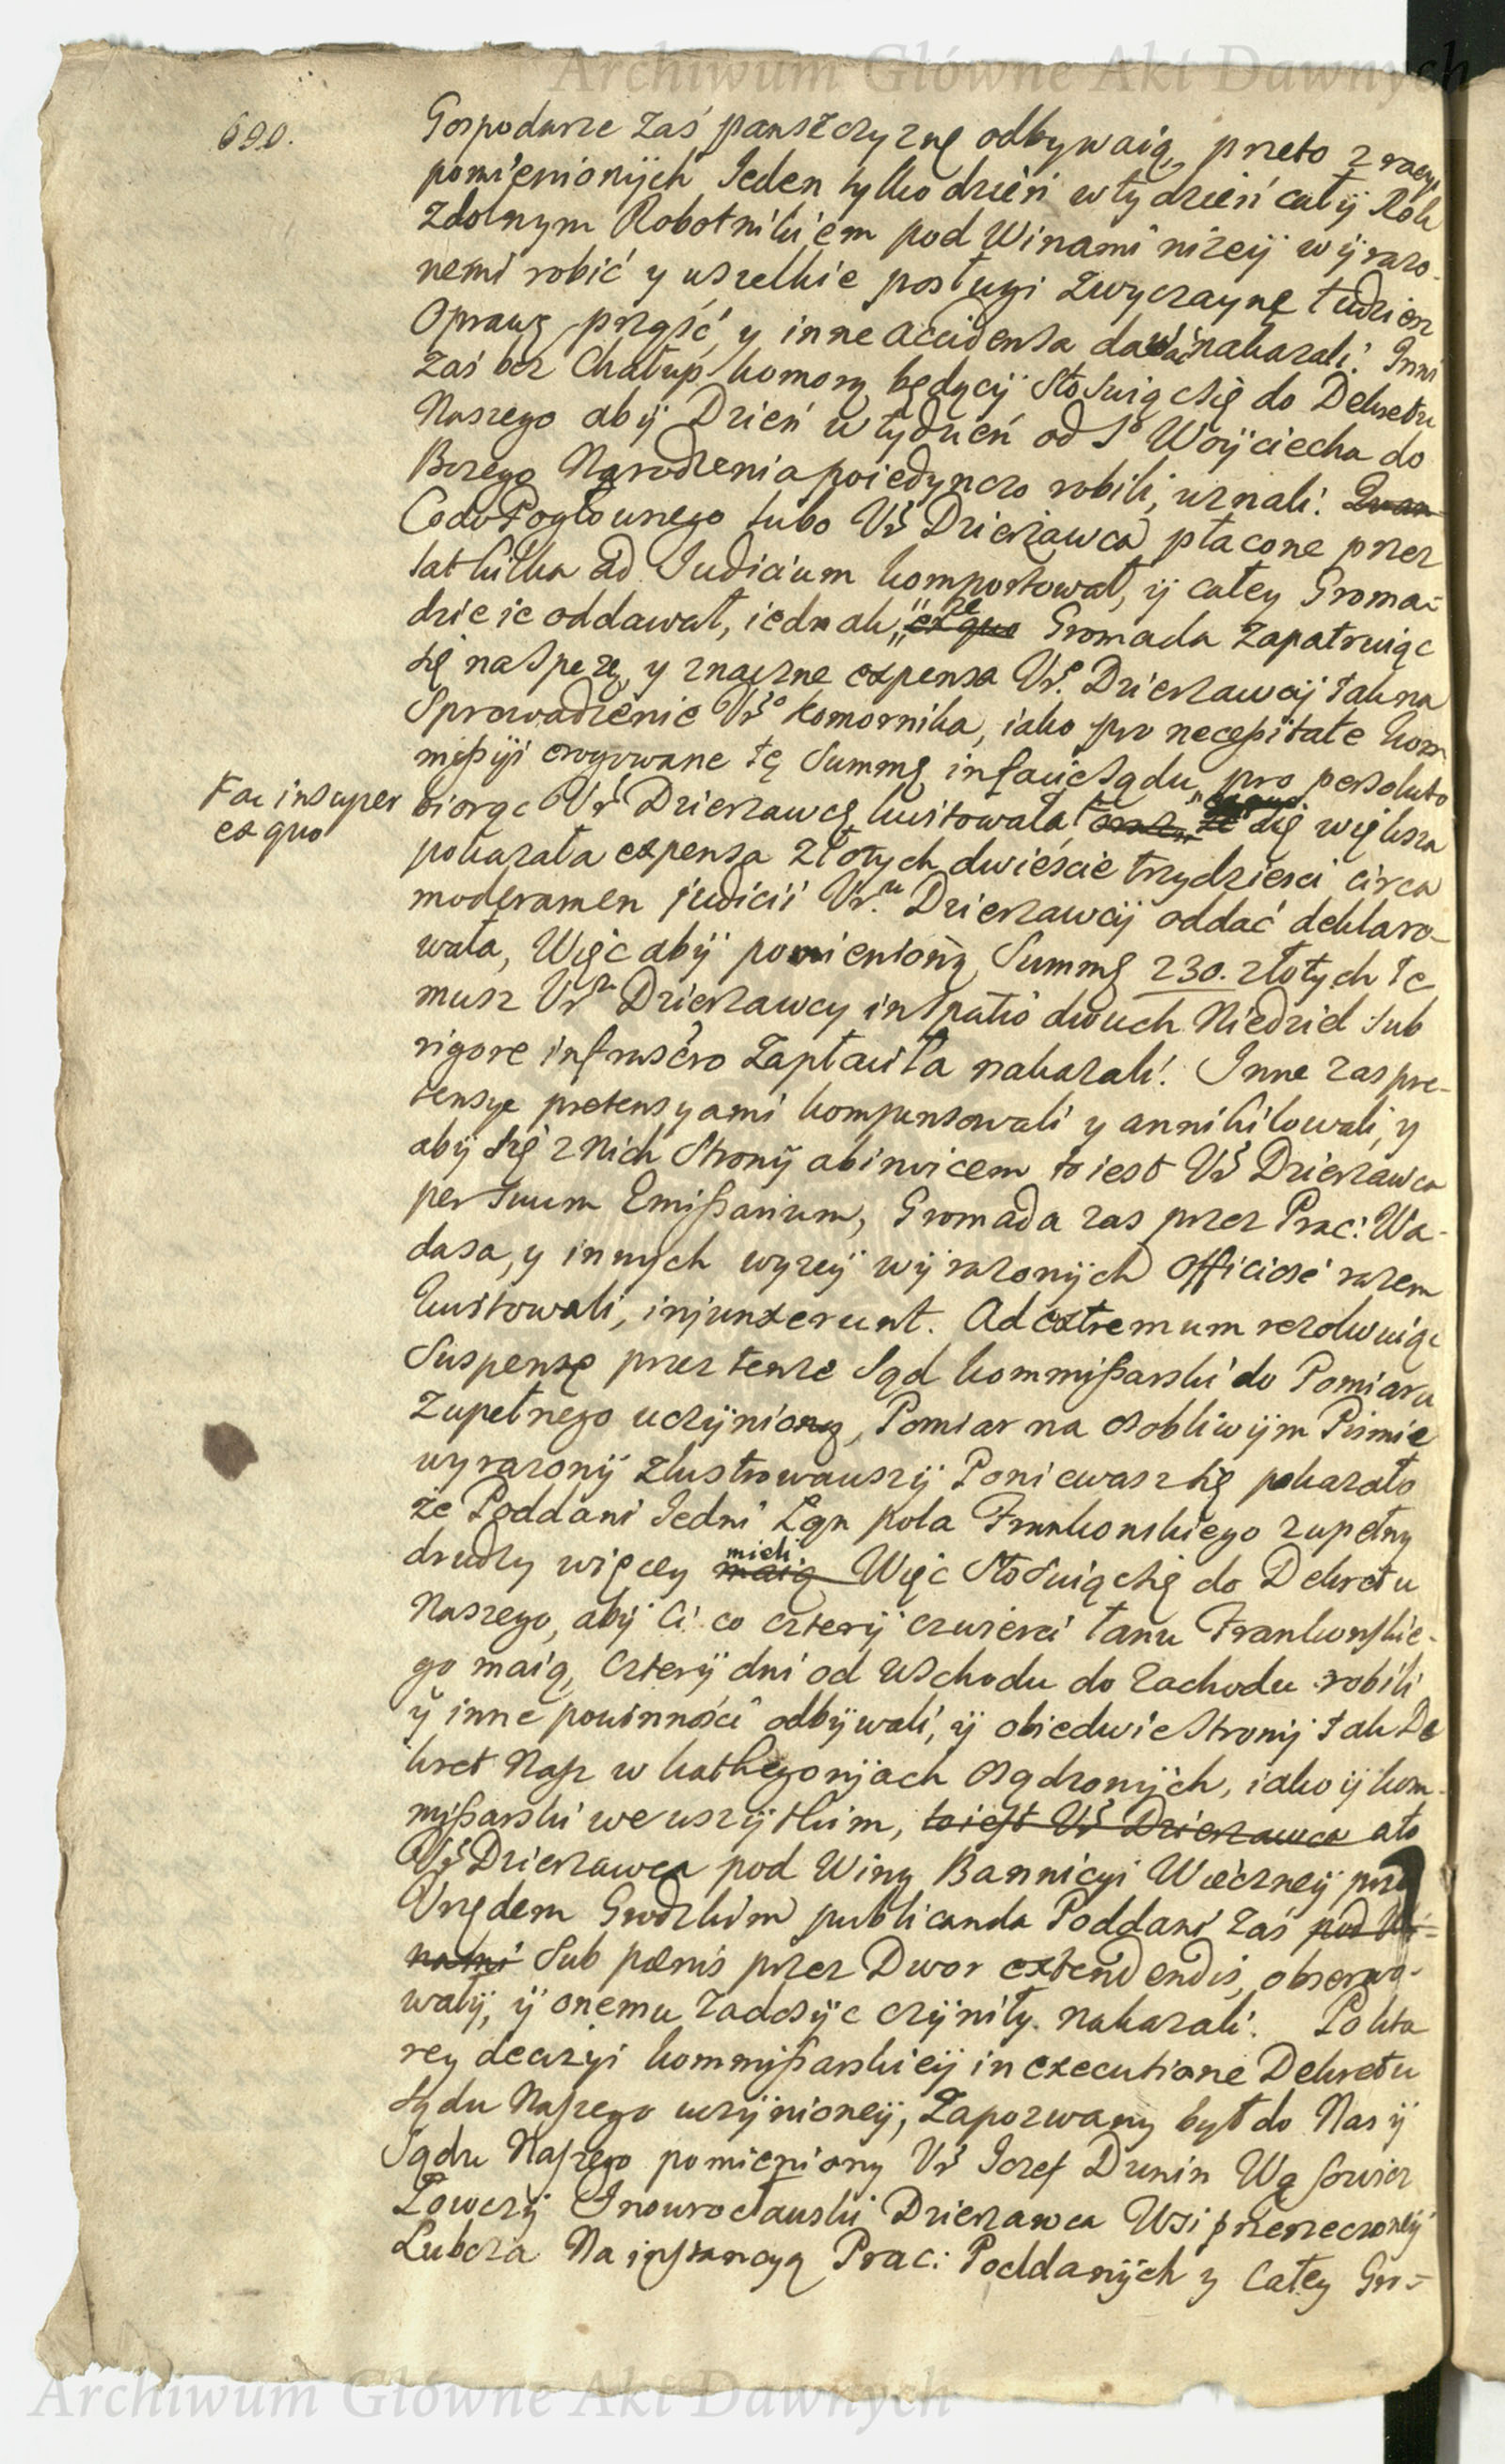 Archiwum Główne Akt Dawnych
690.
Gospodarze zaś panszczyznę odbywaią, przeto z racyi
pomięnionÿch Jeden tylko dzień w tydzień całÿ Rok
zdolnym Robotnikiem pod Winami niżeÿ wÿrazo-
nemi robić y wszelkie posługi zwyczaynę tudziesz
Oprawę, prząść, y inne accidensa dawać nakazali. Inni
zaś bez Chałup komorą będącÿ stosuiąc się do Dekretu
Naszego abÿ Dzień w tydzień od So Woÿciecha do
Bozego Narodzenia poiedynczo robili, uznali.
Co do Pogłownego lubo Ur Dzierżawca płacone przez
lat kilka ad Judicium komportował, ÿ całey Groma-
dzie ie oddawał, iednak ex quo że Gromada zapatruiąc
się na spezę, y znaczne expensa Ur. Dzierzawcÿ tak na
Sprowadzenie Uro Komornika, iako pro necessitate kom
missÿi erogowane tę Summę in facie Sądu, pro persoluto
Fac insuper
ex quo
biorąc Ur Dzierzawcę kwitowała, że się większa
pokazała expensa złotych dwieście trzydziesci circa
moderamen judicii Ur.u Dzierzawcÿ oddać deklaro-
wała, Więc abÿ pomienioną Summę 230. złotych te
musz Uru Dzierzawcy in spatio dwuch Niedziel sub
rigore infrascro zapłaciła nakazali. Inne zas pre-
tensye pretensyami kompensowali y annihilowali, y
abÿ się z nich Stronÿ abinvicem to iest Ur Dzierzawca
per suum Emissarium, Gromada zas przez Prac: Wa-
dasa, y innych wyzeÿ wÿrazonÿch officiose razem
kwitowali, injunxerunt. Ad extremum rezolwuiąc
Suspensę przez tenze Sąd kommissarski do Pomiaru
zupełnego uczÿnioną, Pomiar na osobliwÿm Pismie
wyrazonÿ zlustrowawszÿ Poniewasz się pokazało
że Poddani Jedni Łan Rola Frankonskiego zupełny
drudzy więcey maią mieli. Więc stosuiąc się do Dekretu
Naszego, abÿ Ci co czterÿ czwierci łanu Frankonskie-
go maią, czterÿ dni od wschodu do zachodu robili
ÿ inne powinności odbÿwali, ÿ obiedwie Stronÿ tak De
kret Nasz w kathegorÿach osądzonÿch, iako ÿ kom-
missarski we wszÿstkim, to iest Ur Dzierzawca ato
Ur Dzierzawca pod Winą Bannicyi Wieczneÿ przed
Urzędem Grodzkim publicanda Poddani zaś pod Wi-
nami sub pœnis przez Dwor extendendis, obserwo-
walÿ, ÿ onemu zadosÿc czÿniły nakazali. Po kto
rey decizyi kommissarskieÿ in executione Dekretu
Sądu Naszego uczÿnioneÿ, Zapozwany był do Nas ÿ
Sądu Naszego pomieniony Ur Jozef Dunin Wąsowicz
Łowczÿ Jnowrocławski Dzierzawca Wsi przerzeczoneÿ
Lubcza Na instancyą Prac: Poddanÿch y Całey Gro-
Archiwum Główne Akt Dawnych